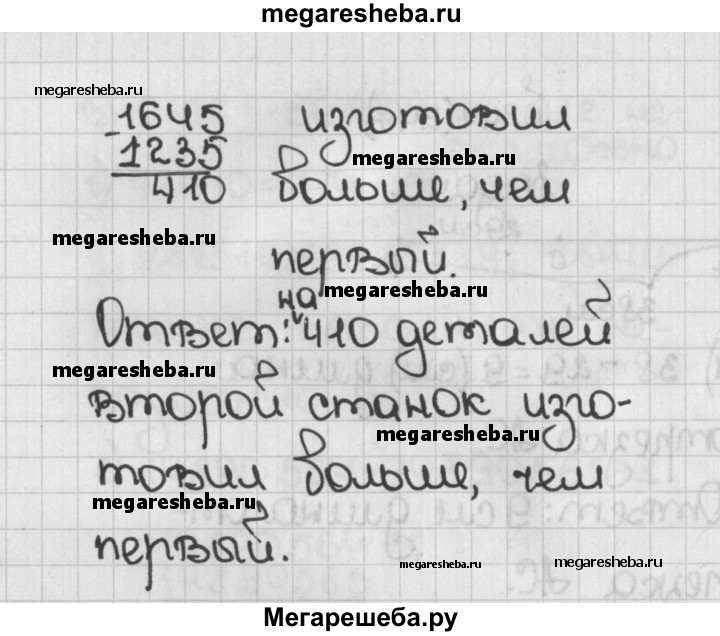 megaresheba.ru
megaresheba.ru
1645 изготовил
- 1235 megaresheba.ru
410 больше, чем
megaresheba.ru
первый.
на megaresheba.ru
Ответ: 410 деталей
megaresheba.ru
второй станок изго-
megaresheba.ru
товил больше, чем
megaresheba.ru
первый.
megaresheba.ru megaresheba.ru
Мегарешеба.ру